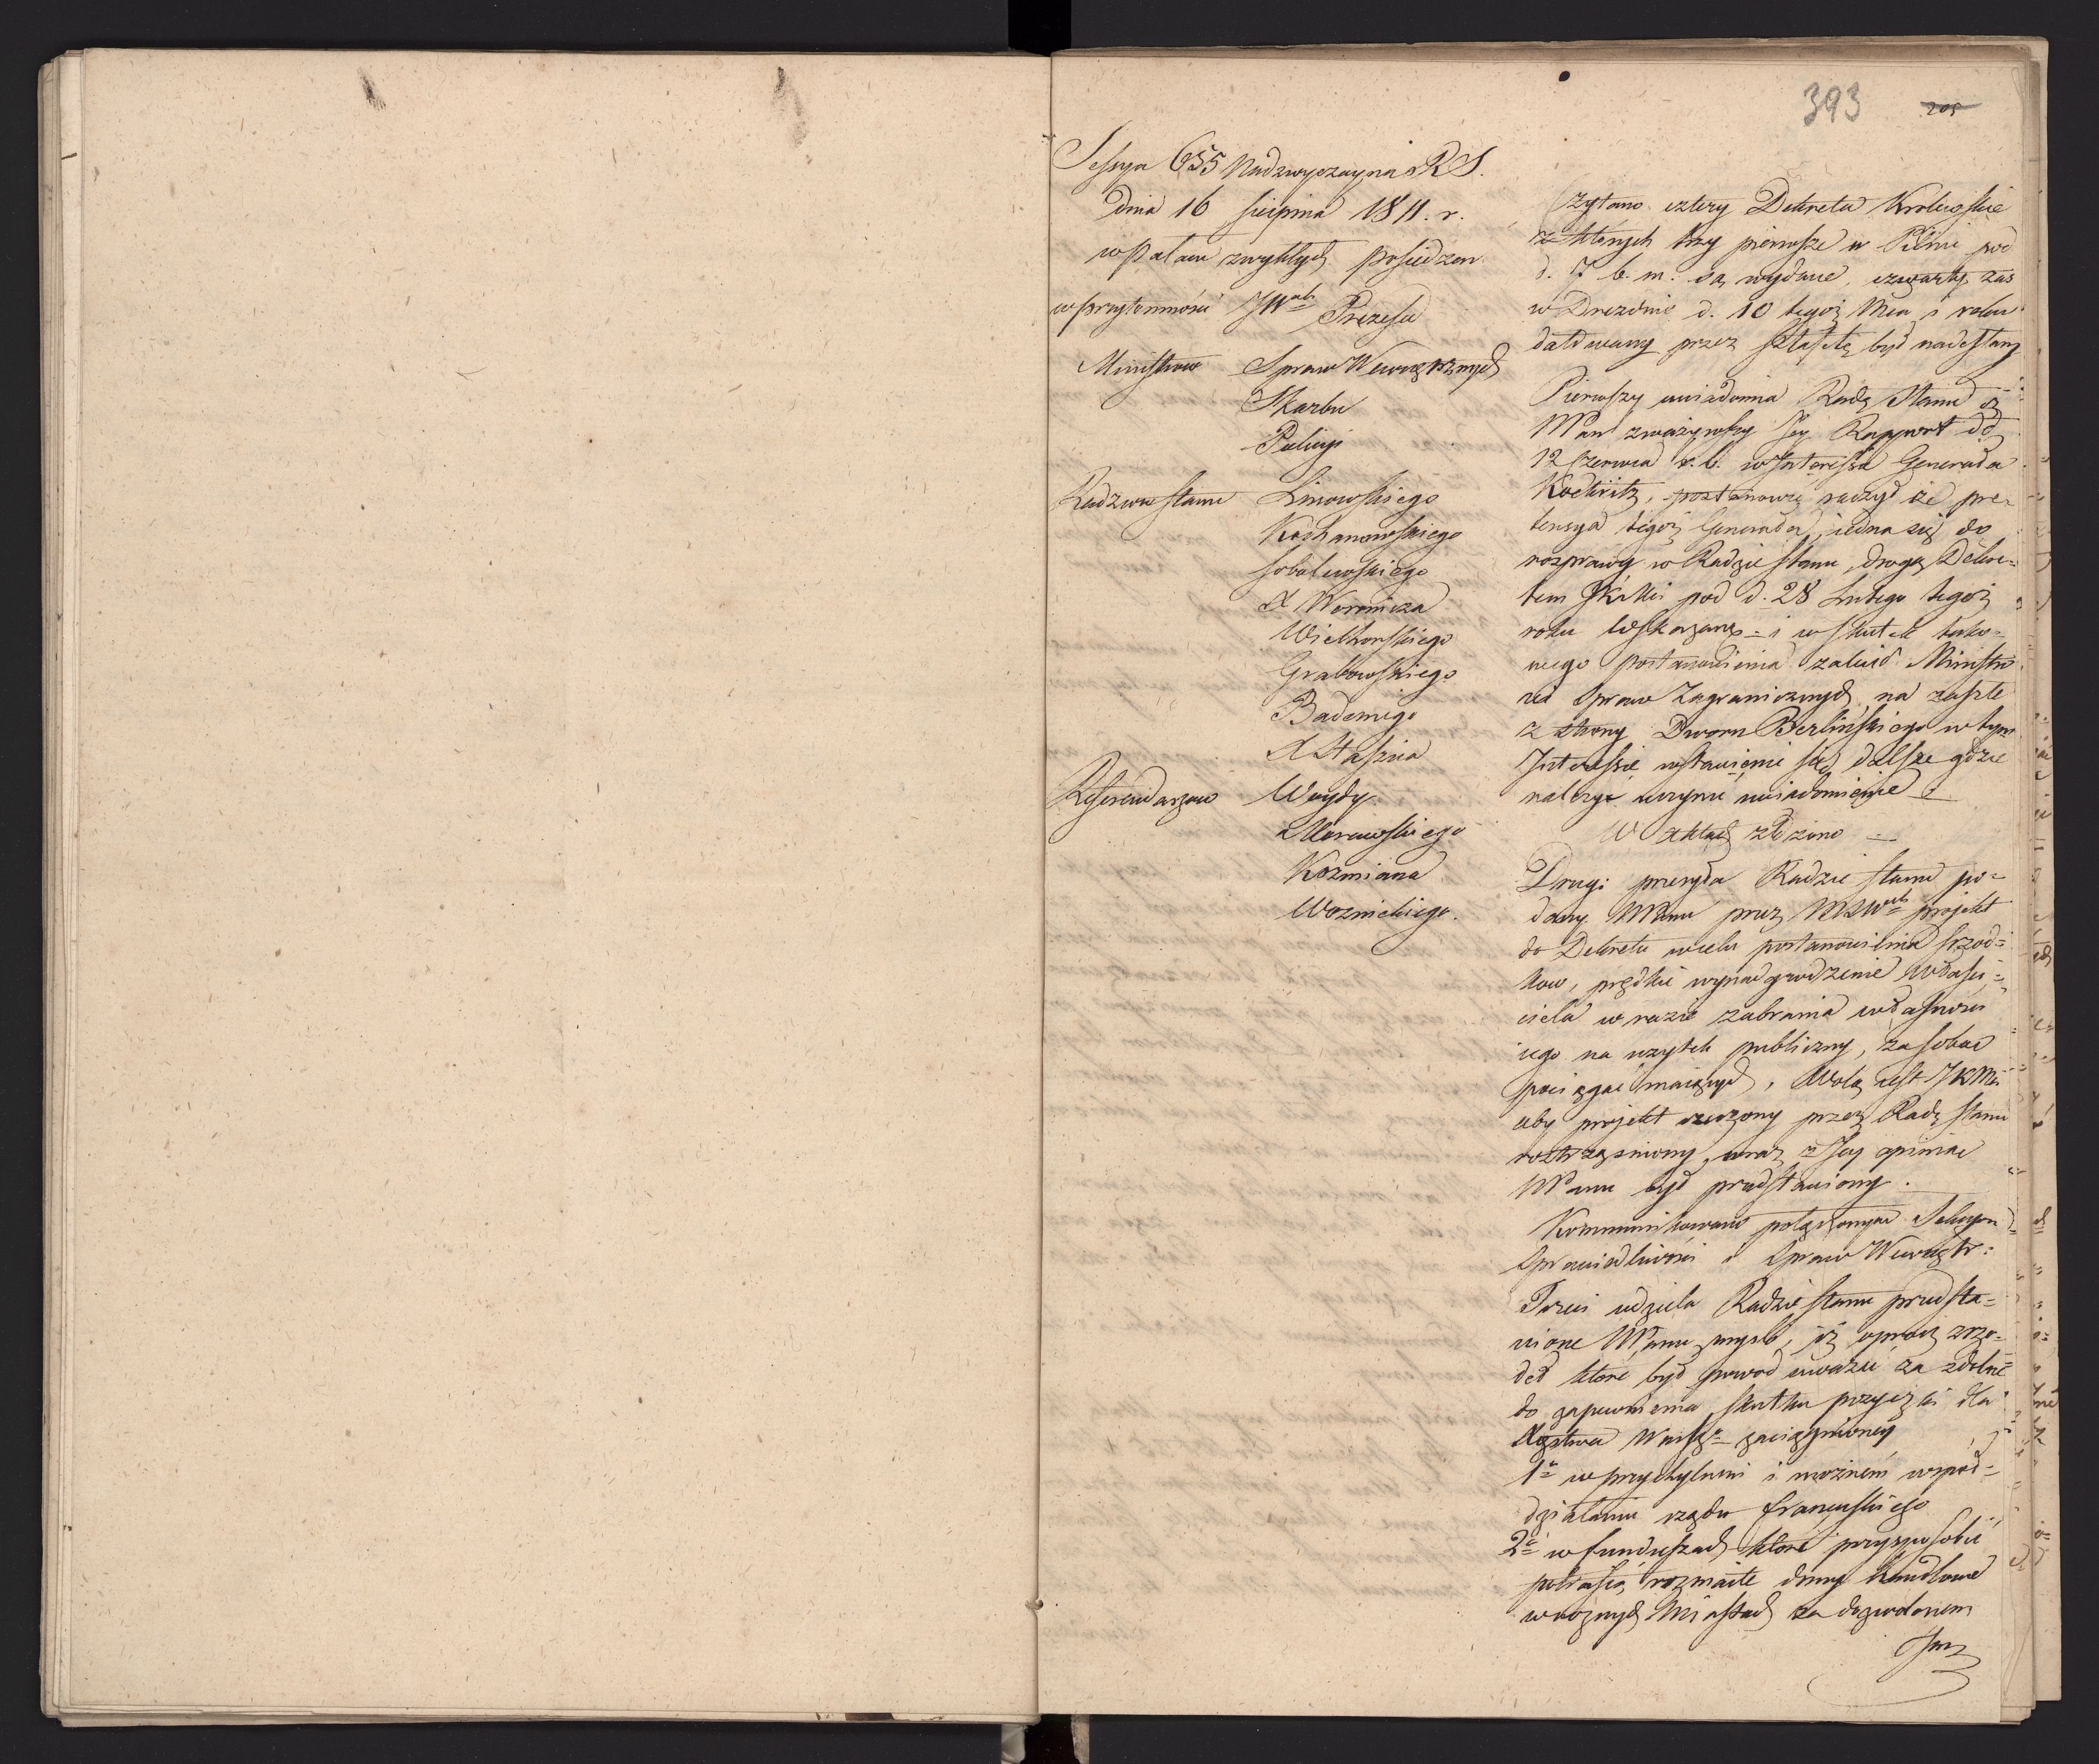 393 205
Sessya 655 Nadzwyczayna R S.
dnia 16 sierpnia 1811. r.
w Pałacu zwykłych posiedzeń
w przytomności JW Prezesa
Ministrów Spraw Wewnętrznych
Skarbu
Policyi
Radzców Stanu Linowskiego
Kochanowskiego
Sobolewskiego
X Woronicza
Wielhorskiego
Grabowskiego
Badeniego
X Staszica
Referendarzow Woydy
Morawskiego
Kozmiana
Woznickiego.
Czytano cztery Dekreta Krolewskie
z których trzy pierwsze w Pilnic pod
d. 7 b. m. są wydane, czwarty zaś
w Dreznie d. 10 tegoż Mca i roku
datowany przez sztafetę był nadesłany
Pierwszy uwiadomia Radę Stanu iż
NPan zważywszy Jey Rapport dd
12 Czerwca r. b. w Interessie Generała
Kockritz, postanowić raczył że pre-
tensya tegoż Generała, iedna się do
rozprawy w Radzie Stanu, drogą Dekre-
tem JKMci pod d. 28 Lutego tegoż
roku wskazaną - i w skutek tako-
wego postanowienia zalecił Ministro
wi Spraw Zagranicznych na zaszłe
z strony Dworu Berlińskiego w tym
Interessie wstawienie się dalsze gdzie
należy uczynić uwiadomienie -
W zkład złożono -
Drugi przesyła Radzie Stanu po-
dany NPanu przez projekt
do Dekretu wcelu postanowienia srzod-
kow, prędkie wynadgrodzenie właści-
ciela w razie zabrania własności
iego na użytek publiczny, za sobą
pociągać maiących, Wolą iest JKMci
aby projekt rzeczony przez Radę Stanu
roztrząśniony, wraz z Jey opinią
NPanu był przedstawiony.
Kommunikowano połączonym Sekcyom
Sprawiedliwości i Spraw Wewnętr:
Trzeci udziela Radzie Stanu przedsta-
wione NPanu myśli, iż oprócz zrzo-
deł które był powod uważać za zdolne
do zapewnienia skutku pożyczki dla
Xięstwa Warsz zaciągnioney
1° w przychylnem i możnem współ-
działaniu rządu francuskiego
2° w funduszach które przysposobić
potrafią rozmaite domy handlowe
w roznych Miastach za dozwoleniem